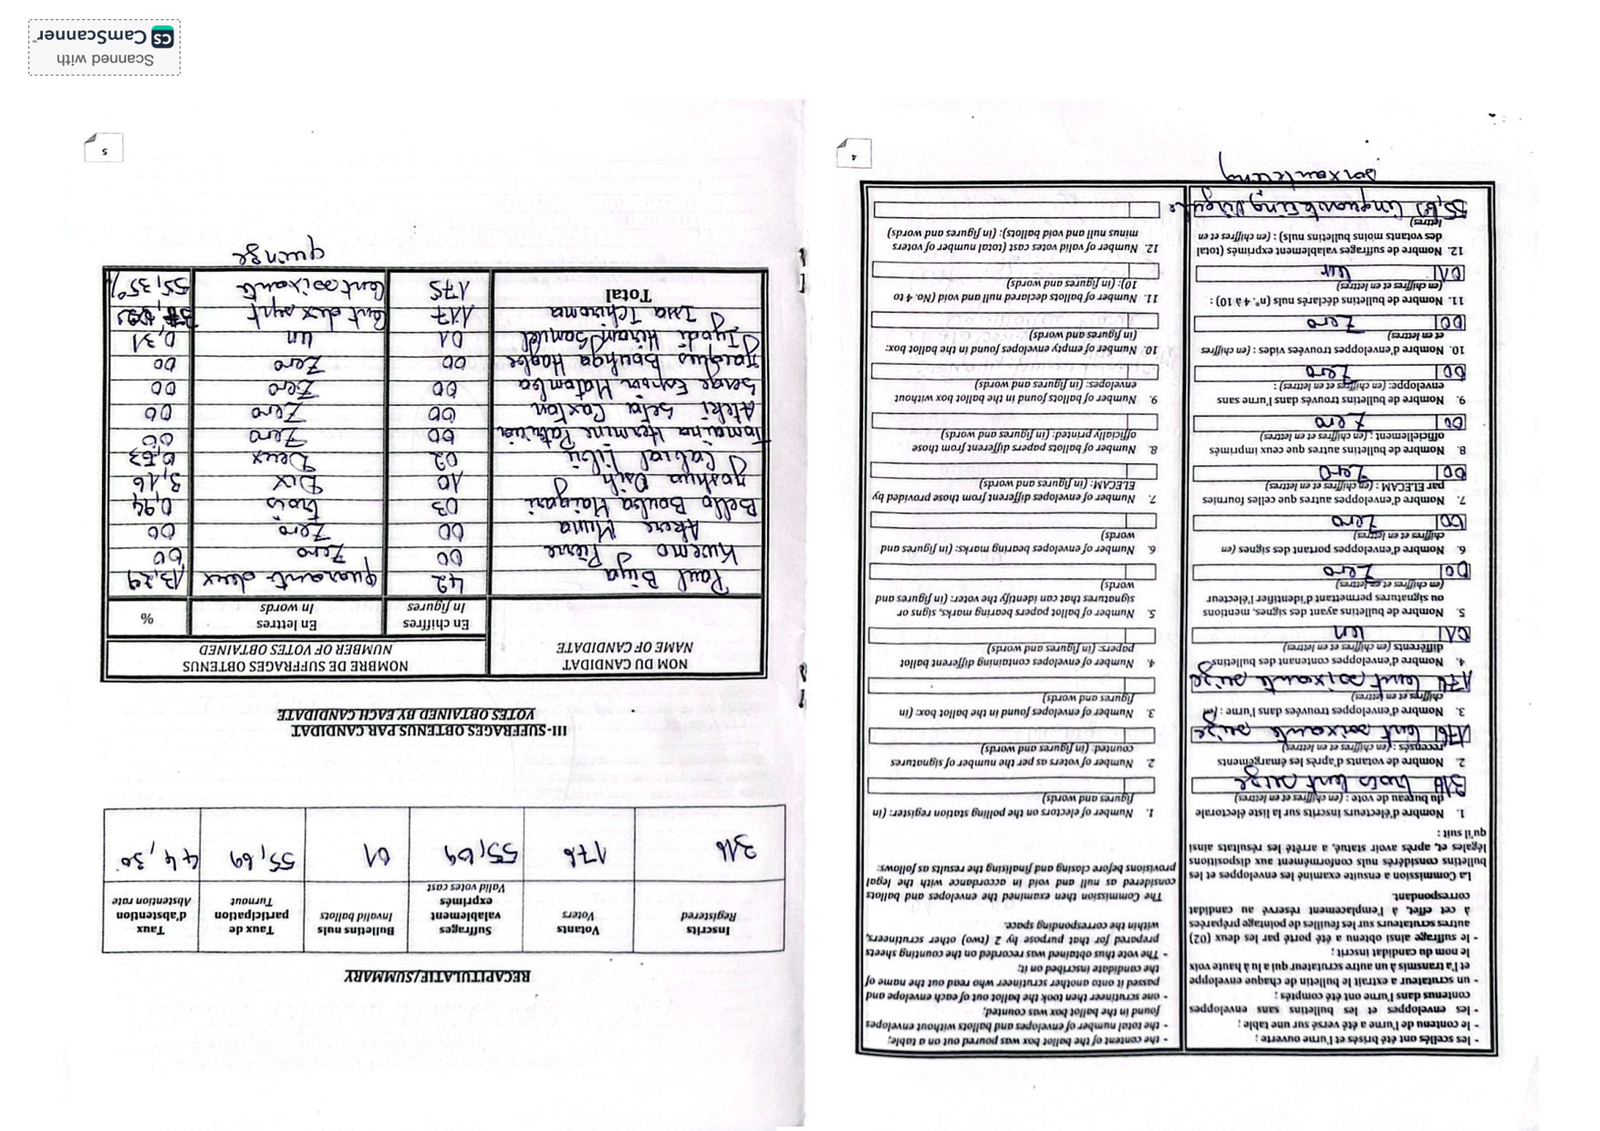 - les scellés ont été brisés et l'urne ouverte ;
- le contenu de l'urne a été versé sur une table ;
- les enveloppes et les bulletins sans enveloppes contenus dans l'urne ont été comptés ;
- un scrutateur a extrait le bulletin de chaque enveloppe et l'a transmis à un autre scrutateur qui a lu à haute voix le nom du candidat inscrit ;
- le suffrage ainsi obtenu a été porté par les deux (02) autres scrutateurs sur les feuilles de pointage préparées à cet effet, à l'emplacement réservé au candidat correspondant.
La Commission a ensuite examiné les enveloppes et les bulletins considérés nuls conformément aux dispositions légales et, après avoir statué, a arrêté les résultats ainsi qu'il suit :
1. Nombre d'électeurs inscrits sur la liste électorale du bureau de vote : (en chiffres et en lettres)
316 trois cent seize
2. Nombre de votants d'après les émargements recensés : (en chiffres et en lettres)
176 cent soixante seize
3. Nombre d'enveloppes trouvées dans l'urne : (en chiffres et en lettres)
176 cent soixante seize
4. Nombre d'enveloppes contenant des bulletins différents (en chiffres et en lettres)
01 un
5. Nombre de bulletins ayant des signes, mentions ou signatures permettant d'identifier l'électeur (en chiffres et en lettres)
00 Zero
6. Nombre d'enveloppes portant des signes (en chiffres et en lettres)
00 Zero
7. Nombre d'enveloppes autres que celles fournies par ELECAM : (en chiffres et en lettres)
00 Zero
8. Nombre de bulletins autres que ceux imprimés officiellement : (en chiffres et en lettres)
00 Zero
9. Nombre de bulletins trouvés dans l'urne sans enveloppe: (en chiffres et en lettres) :
00 Zero
10. Nombre d'enveloppes trouvées vides : (en chiffres et en lettres)
00 Zero
11. Nombre de bulletins déclarés nuls (n° 4 à 10) : (en chiffres et en lettres)
01 un
12. Nombre de suffrages valablement exprimés (total des votants moins bulletins nuls) : (en chiffres et en lettres)
cinquante cinq virgule
soixante cinq
- the content of the ballot box was poured out on a table;
- the total number of envelopes and ballots without envelopes found in the ballot box was counted;
- one scrutineer then took the ballot out of each envelope and passed it onto another scrutineer who read out the name of the candidate inscribed on it;
- The vote thus obtained was recorded on the counting sheets prepared for that purpose by 2 (two) other scrutineers, within the corresponding space.
The Commission then examined the envelopes and ballots considered as null and void in accordance with the legal provisions before closing and finalising the results as follows:
1. Number of electors on the polling station register: (in figures and words)
2. Number of voters as per the number of signatures counted: (in figures and words)
3. Number of envelopes found in the ballot box: (in figures and words)
4. Number of envelopes containing different ballot papers: (in figures and words)
5. Number of ballot papers bearing marks, signs or signatures that can identify the voter: (in figures and words)
6. Number of envelopes bearing marks: (in figures and words)
7. Number of envelopes different from those provided by ELECAM: (in figures and words)
8. Number of ballots papers different from those officially printed: (in figures and words)
9. Number of ballots found in the ballot box without envelopes: (in figures and words)
10. Number of empty envelopes found in the ballot box: (in figures and words)
11. Number of ballots declared null and void (No. 4 to 10): (in figures and words)
12. Number of valid votes cast (total number of voters minus null and void ballots): (in figures and words)
4
RECAPITULATIF/SUMMARY
Inscrits Registered | Votants Voters | Suffrages valablement exprimés Valid votes cast | Bulletins nuls Invalid ballots | Taux de participation Turnout | Taux d'abstention Abstention rate
316 | 176 | 55,69 | 01 | 55,69 | 44,30
III-SUFFRAGES OBTENUS PAR CANDIDAT
VOTES OBTAINED BY EACH CANDIDATE
NOM DU CANDIDAT NAME OF CANDIDATE | NOMBRE DE SUFFRAGES OBTENUS NUMBER OF VOTES OBTAINED
En chiffres In figures | En lettres In words | %
Paul Biya | 42 | quarante deux | 13,29
Kwemo Pierre | 00 | Zero | 00
Akere Muna | 00 | Zero | 00
Bello Bouba Maigari | 03 | trois | 0,94
Joshua Osih | 10 | Dix | 3,16
Cabral Libii | 02 | Deux | 0,63
Tomaino Hermine Patricia | 00 | Zero | 00
Ateki Seta Caxton | 00 | Zero | 00
Serge Espoir Matomba | 00 | Zero | 00
Jacques Bouhga Hagbe | 00 | Zero | 00
Iyodi Hiram Samuel | 01 | un | 0,31
Issa Tchiroma | 117 | Cent dix sept
Total | 175 | Cent soixante | 55,35%
quinze
5
Scanned with
CS CamScanner